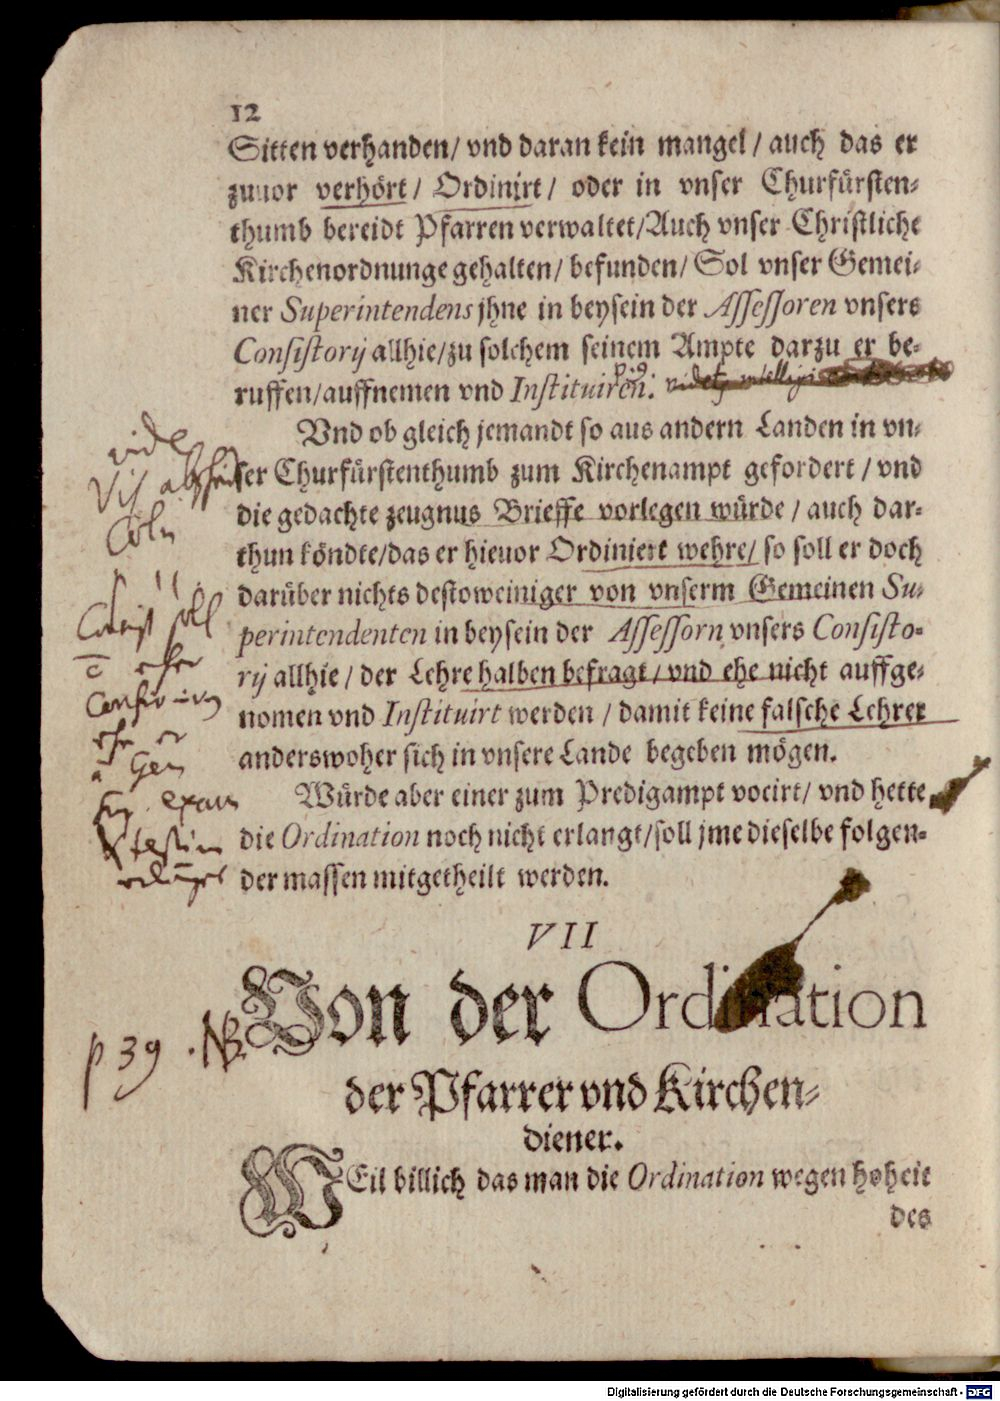 12
Sitten verhanden/ vnd daran kein mangel/ auch das er
zuuor verhört/ Ordinirt/ oder in vnser Churfürsten-
thumb bereidt Pfarren verwaltet/Auch vnser Christliche
Kirchenordnunge gehalten/ befunden/ Sol vnser Gemei-
ner Superintendens jhne in beysein der Assessoren vnsers
Consistorij allhie/zu solchem seinem Ampte darzu er be-
ruffen/auffnemen vnd Instituiren.
Vnd ob gleich jemandt so aus andern Landen in vn-
vide
ser Churfürstenthumb zum Kirchenampt gefordert/ vnd
die gedachte zeugnus Brieffe vorlegen würde/ auch dar-
Cöln
thun köndte/das er hieuor Ordiniert wehre/ so soll er doch
p 11.
darüber nichts destoweiniger von vnserm Gemeinen Su-
soll
perintendenten in beysein der Assessorn vnsers Consisto-
rij allhie/ der Lehre halben befragt/ vnd ehe nicht auffge-
nomen vnd Instituirt werden/ damit keine falsche Lehrer
anderswoher sich in vnsere Lande begeben mögen.
Würde aber einer zum Predigampt vocirt/ vnd hette
die Ordination noch nicht erlangt/soll jme dieselbe folgen-
der massen mitgetheilt werden.
VII
Von der Ordination
p 39 . NB.
der Pfarrer vnd Kirchen-
diener.
WEil billich das man die Ordination wegen hoheit
des
Digitalisierung gefördert durch die Deutsche Forschungsgemeinschaft - DFG